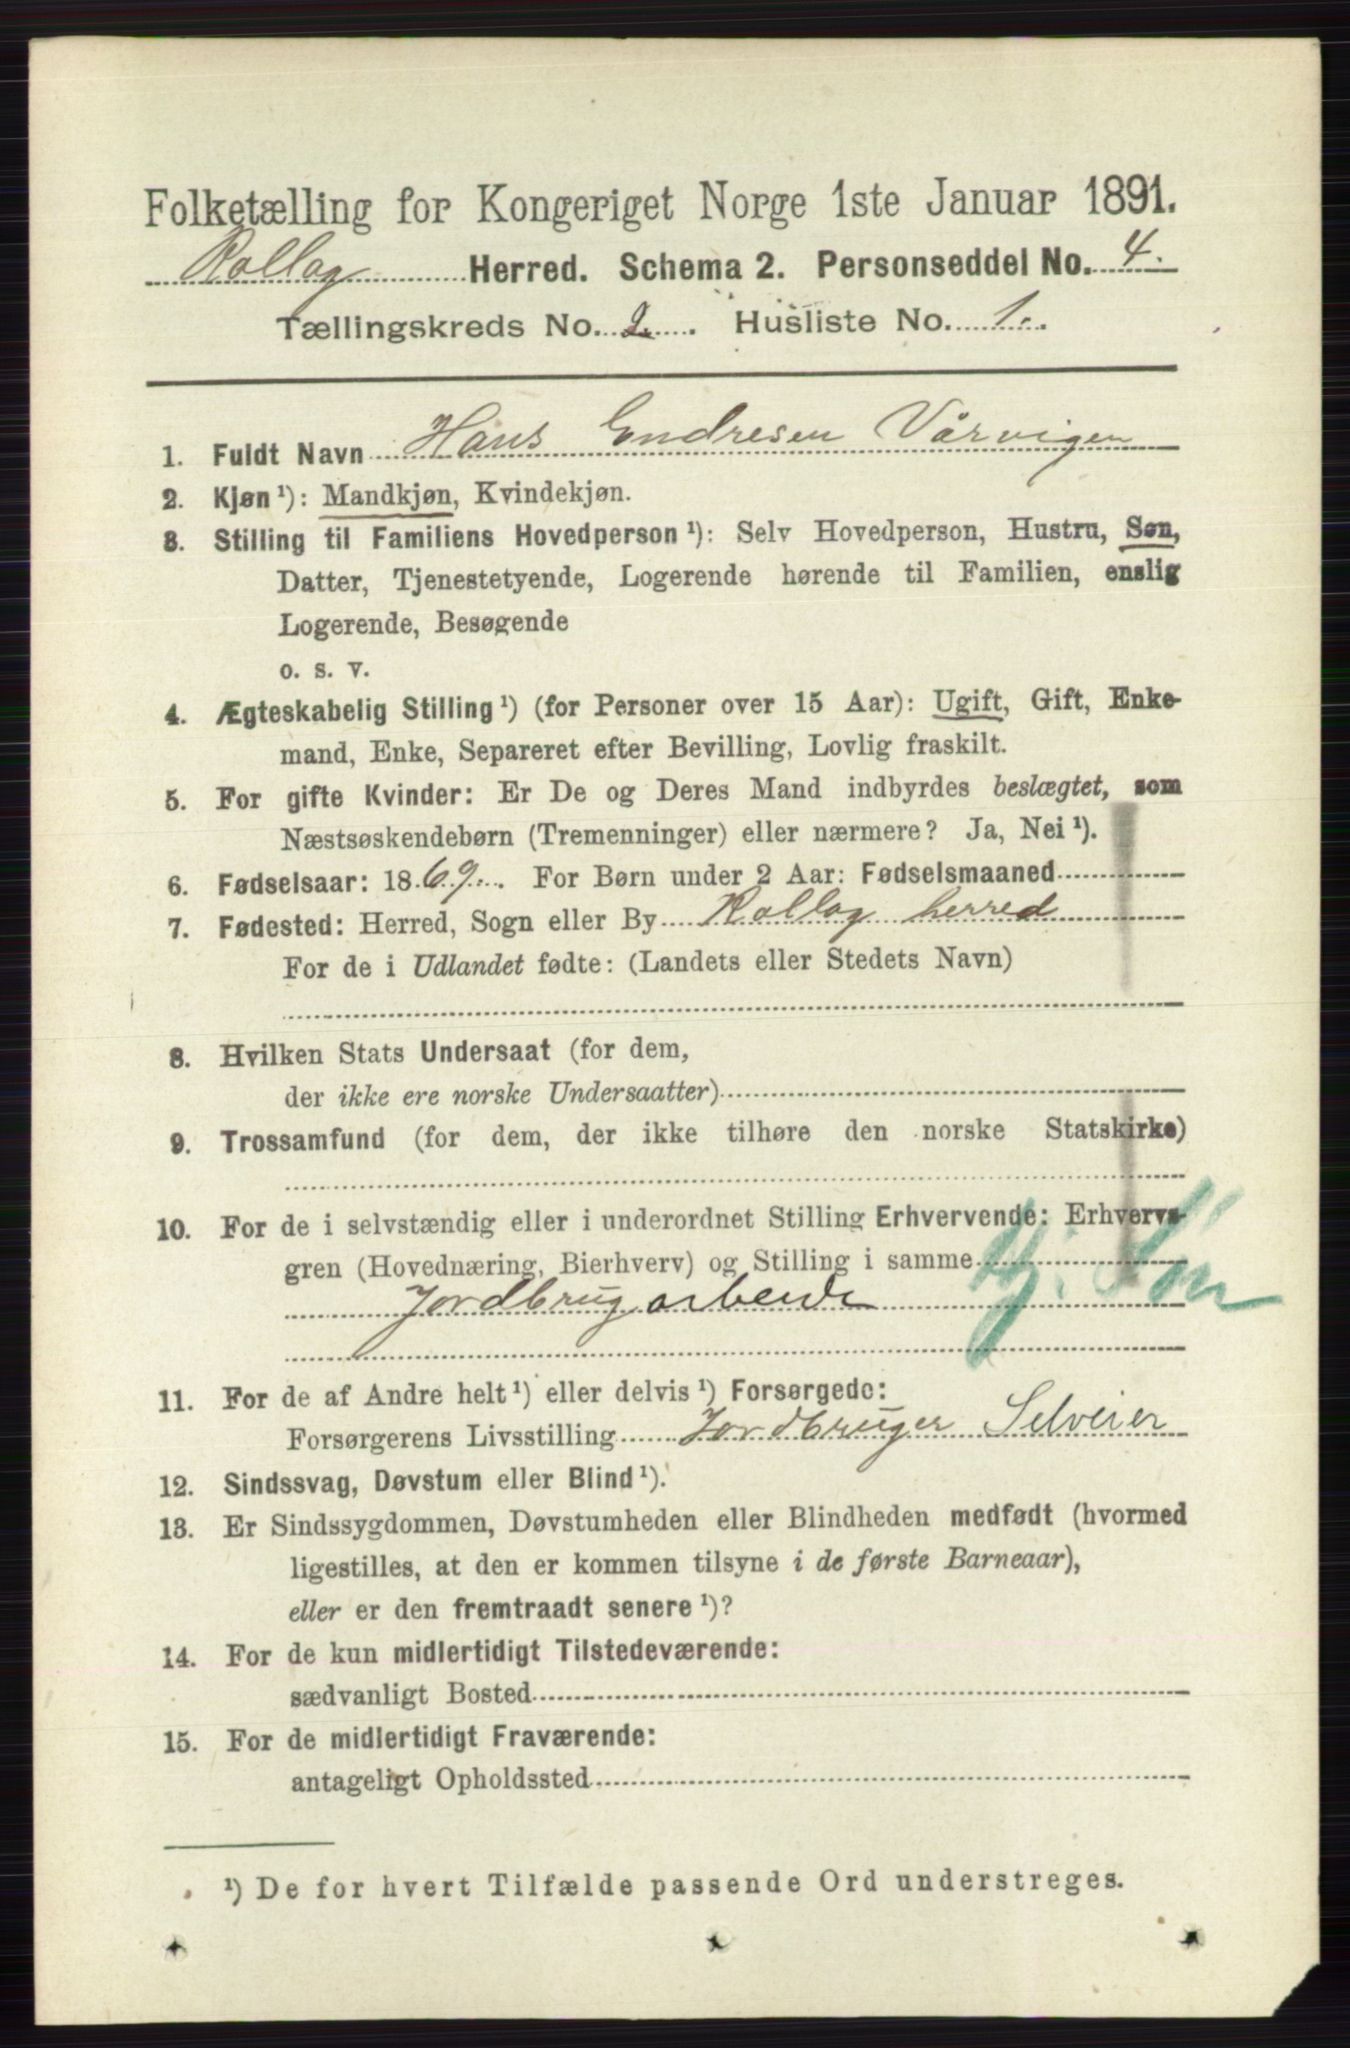 Folketælling for Kongeriget Norge 1ste Januar 1891.
Rollag Herred. Schema 2. Personseddel No. 4.
Tællingskreds No. 2. Husliste No. 1.
1. Fuldt Navn Hans Endresen Vårvigen
2. Kjøn ¹): Mandkjøn, Kvindekjøn.
3. Stilling til Familiens Hovedperson ¹): Selv Hovedperson, Hustru, Søn,
Datter, Tjenestetyende, Logerende hørende til Familien, enslig
Logerende, Besøgende
o. s. v.
4. Ægteskabelig Stilling ¹) (for Personer over 15 Aar): Ugift, Gift, Enke-
mand, Enke, Separeret efter Bevilling, Lovlig fraskilt.
5. For gifte Kvinder: Er De og Deres Mand indbyrdes beslægtet, som
Næstsøskendebørn (Tremenninger) eller nærmere? Ja, Nei ¹).
6. Fødselsaar: 1869. For Børn under 2 Aar: Fødselsmaaned
7. Fødested: Herred, Sogn eller By Rollag herred
For de i Udlandet fødte: (Landets eller Stedets Navn)
8. Hvilken Stats Undersaat (for dem,
der ikke ere norske Undersaatter)
9. Trossamfund (for dem, der ikke tilhøre den norske Statskirke)
10. For de i selvstændig eller i underordnet Stilling Erhvervende: Erhvervs-
gren (Hovednæring, Bierhverv) og Stilling i samme
Jordbrug arbeide Hj. Søn
11. For de af Andre helt ¹) eller delvis ¹) Forsørgede:
Forsørgerens Livsstilling Jordbruger Selveier
12. Sindssvag, Døvstum eller Blind ¹).
13. Er Sindssygdommen, Døvstumheden eller Blindheden medfødt (hvormed
ligestilles, at den er kommen tilsyne i de første Barneaar),
eller er den fremtraadt senere ¹)?
14. For de kun midlertidigt Tilstedeværende:
sædvanligt Bosted
15. For de midlertidigt Fraværende:
antageligt Opholdssted
¹) De for hvert Tilfælde passende Ord understreges.